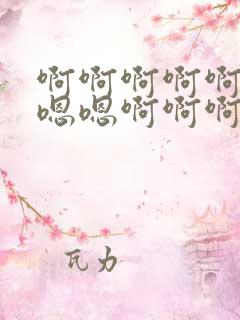 啊啊啊啊啊
嗯嗯啊啊啊
瓦力